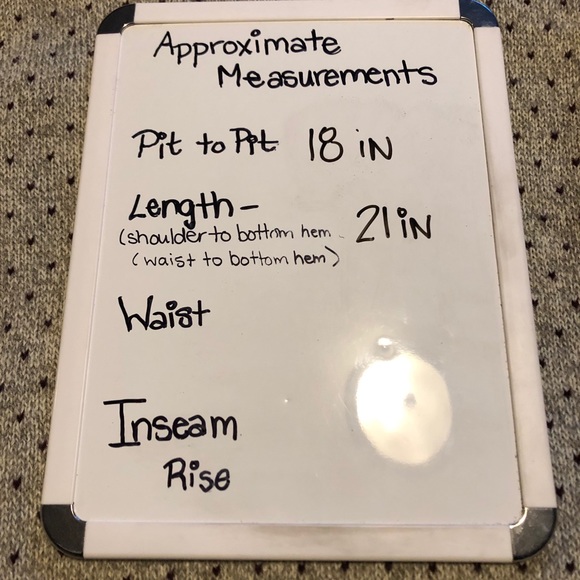 Approximate
Measurements
Pit to Pit 18 iN
Length- 21 iN
(shoulder to bottom hem
(waist to bottom hem)
Waist
Inseam
Rise